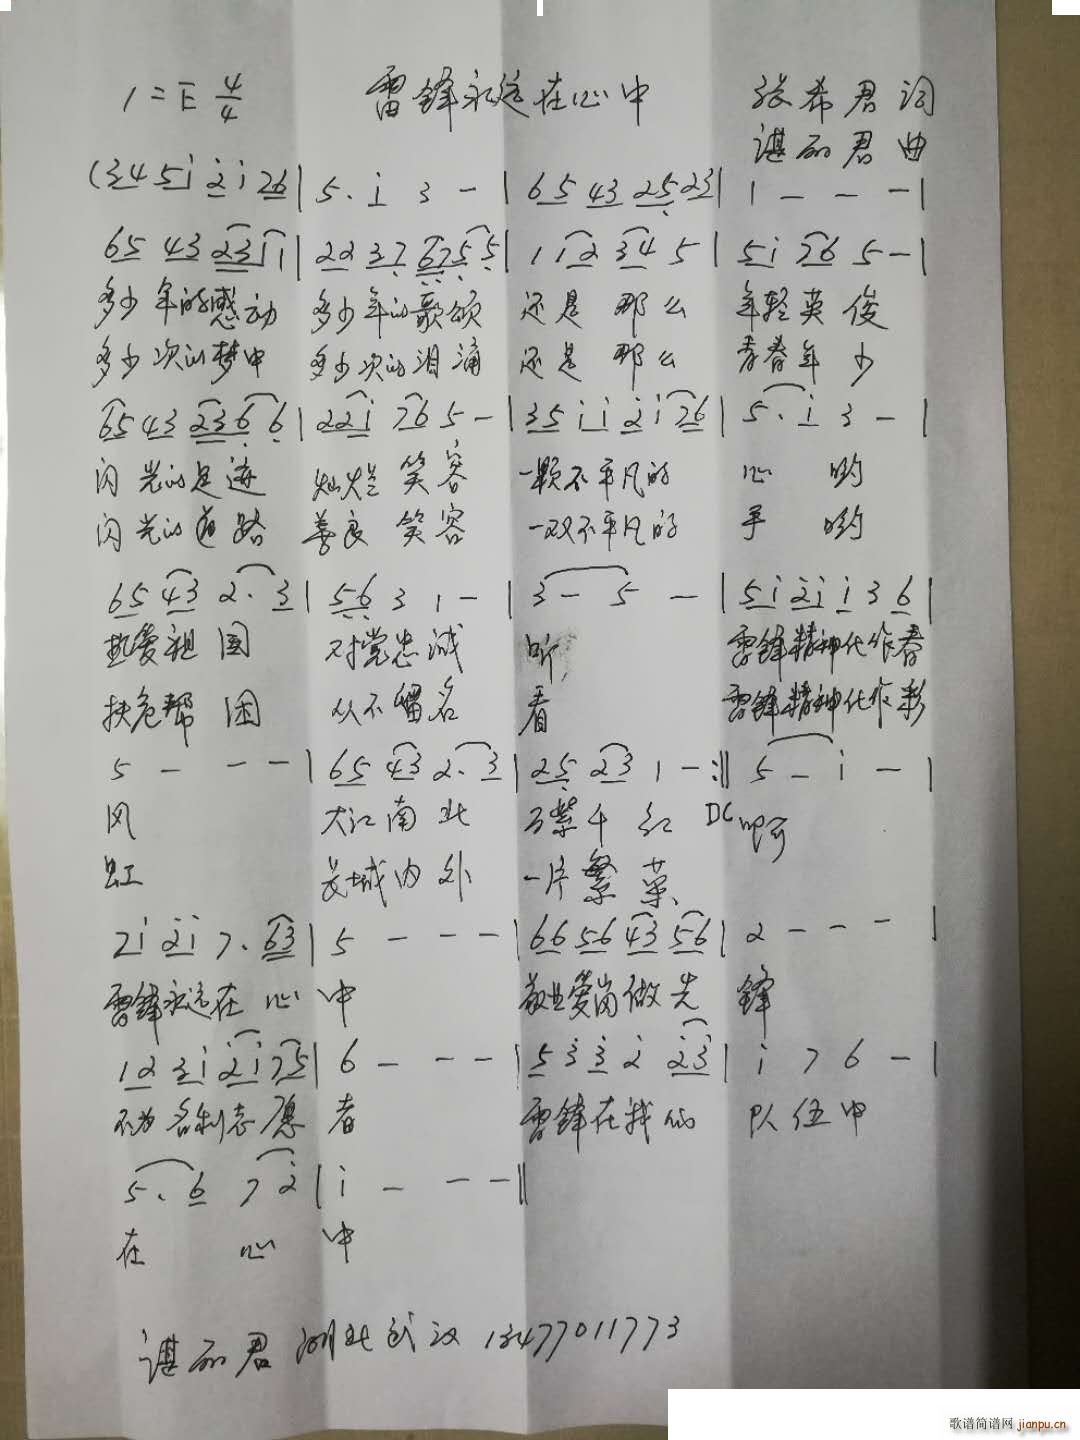 1=E 4/4 雷锋永远在心中 张希君词
谌丽君曲
(34 5i 2i 26 | 5. i 3 - | 65 43 25 23 | 1 - - - |
65 43 23 1 1 | 22 37 67 5 5 | 1 1 2 34 5 | 5i 76 5 - |
多少年的感动 多少年的歌颂 还是那么 年轻英俊
多少次的梦中 多少次的泪涌 还是那么 青春年少
65 43 23 6 6 | 22 i 76 5 - | 35 i i 2 i 76 | 5. i 3 - |
闪光的足迹 灿烂笑容 一颗不平凡的 心哟
闪光的道路 善良笑容 一双不平凡的 手哟
65 43 2. 3 | 56 3 1 - | 3 - 5 - | 5i 2i i 3 6 |
热爱祖国 对党忠诚 听 雷锋精神化作春
扶危帮困 从不留名 看 雷锋精神化作彩
5 - - - | 65 43 2. 3 | 25 23 1 - :|| 5 - i - |
风 大江南北 万紫千红 DC 啊
虹 长城内外 一片繁荣
7i 2i 7. 63 | 5 - - - | 66 56 43 56 | 2 - - - |
雷锋永远在心中 敬业爱岗做先锋
12 3i 2i 75 | 6 - - - | 5 3 3 2 23 | i 7 6 - |
不为名利志愿者 雷锋在我们 队伍中
5. 6 7 2 | i - - - ||
在心中
谌丽君 湖北武汉 13477011773
歌谱简谱网 jianpu.cn